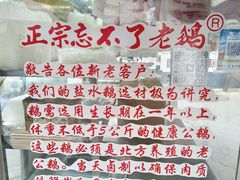 正宗忘不了老鹅®
敬告各位新老客户：
我们的盐水鹅选材极为讲究，
鹅需选用生长期在一年以上，
体重不低于5公斤的健康公鹅，
这些鹅必须是北方养殖的老
公鹅。当天卤制以确保肉质